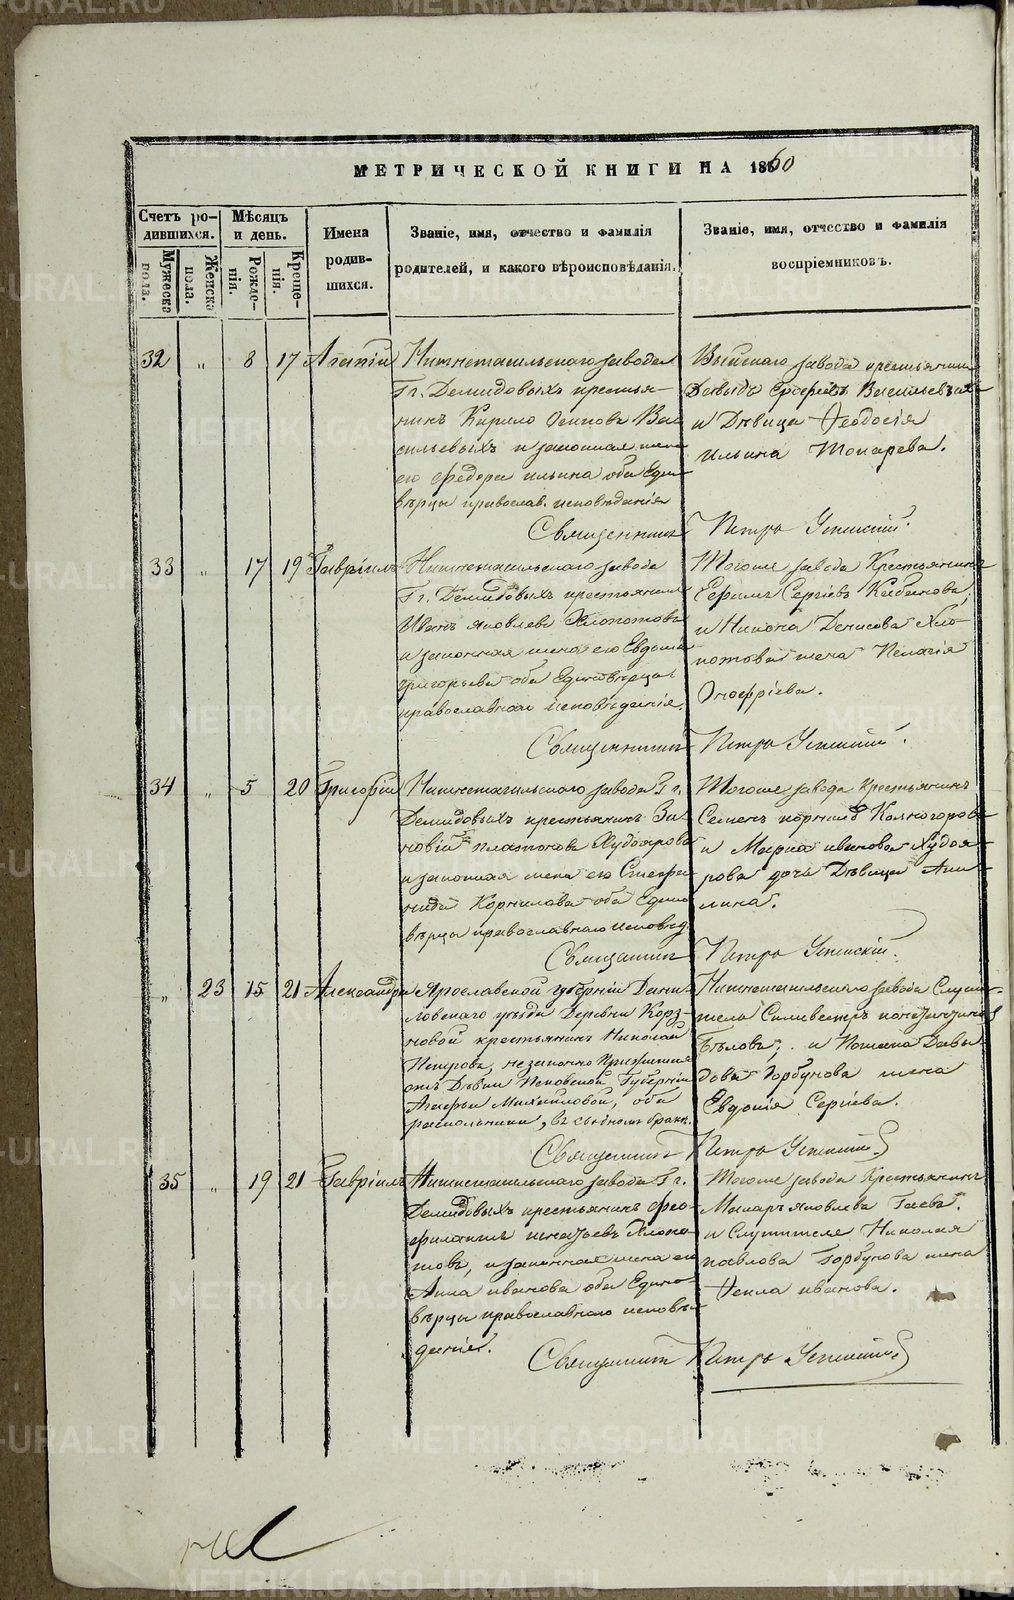 МЕТРИЧЕСКОЙ КНИГИ НА 1860
Счетъ ро-
дившихся.
Мужеска
пола.
Женска
пола.
Мѣсяцъ
и день.
Рожде-
нія.
Креще-
нія.
Имена
родив-
шихся.
Званіе, имя, отчество и фамилія
родителей, и какого вѣроисповѣданія.
Званіе, имя, отчество и фамилія
воспріемниковъ.
32 " 8 17 Агапій
Нижнетагильскаго завода
Гг. Демидовыхъ крестья-
нинъ Кирило Осиповъ Ва-
сильевыхъ и законная жена
его Федора Ильина оба Едино-
вѣрцы православ. исповѣданія
Выйскаго завода крестьянинъ
Давыдъ Васильевыхъ
и Дѣвица Ѳеодосія
Ильина Токарева.
Священникъ Петръ Успенскій.
33 " 17 19 Гавріилъ
Нижнетагильскаго завода
Гг. Демидовыхъ крестьянинъ
Иванъ Яковлевъ Хлопотовъ
и законная жена его Евдокія
Григорьева оба Единовѣрцы
православнаго исповѣданія.
Тогоже завода Крестьянинъ
Ефимъ Сергіевъ Кабановъ,
и Никона Денисова Хло-
потова жена Пелагія
Онофріева.
Священникъ Петръ Успенскій.
34 " 5 20 Григорій
Нижнетагильскаго завода Гг.
Демидовыхъ крестьянинъ Зи-
новій Платоновъ Худояровъ
и законная жена его Стефа-
нида Корнилова оба Едино-
вѣрцы православнаго исповѣд.
Тогоже завода Крестьянинъ
Семенъ Корниловъ Колногоровъ
и Марка Иванова Худоя-
рова дочь Дѣвица Аки-
лина.
Священникъ Петръ Успенскій.
" 23 15 21 Александра
Ярославской губерніи Дани-
ловскаго уѣзда Деревни
новой крестьянинъ Николай
Петровъ, незаконно Прижитая
отъ Дѣвки Псковской Губерніи
Агафьи Михайловой, оба
раскольники, въ бракѣ.
Нижнетагильскаго завода Служи-
тель Силивестръ
Бѣловъ, и Потапа Давы-
дова Горбунова жена
Евдокія Сергіева.
Священникъ Петръ Успенскій
35 " 19 21 Гавріилъ
Нижнетагильскаго завода Гг.
Демидовыхъ крестьянинъ Фео-
филактъ Игнатьевъ Хлопо-
товъ, и законная жена его
Анна Иванова оба Едино-
вѣрцы православнаго исповѣ-
данія.
Тогоже завода Крестьянинъ
Макаръ Яковлевъ Гаевъ.
и Служителя Николая
Павлова Горбунова жена
Ѳекла Иванова.
Священникъ Петръ Успенскій
METRIKI.GASO-URAL.RU